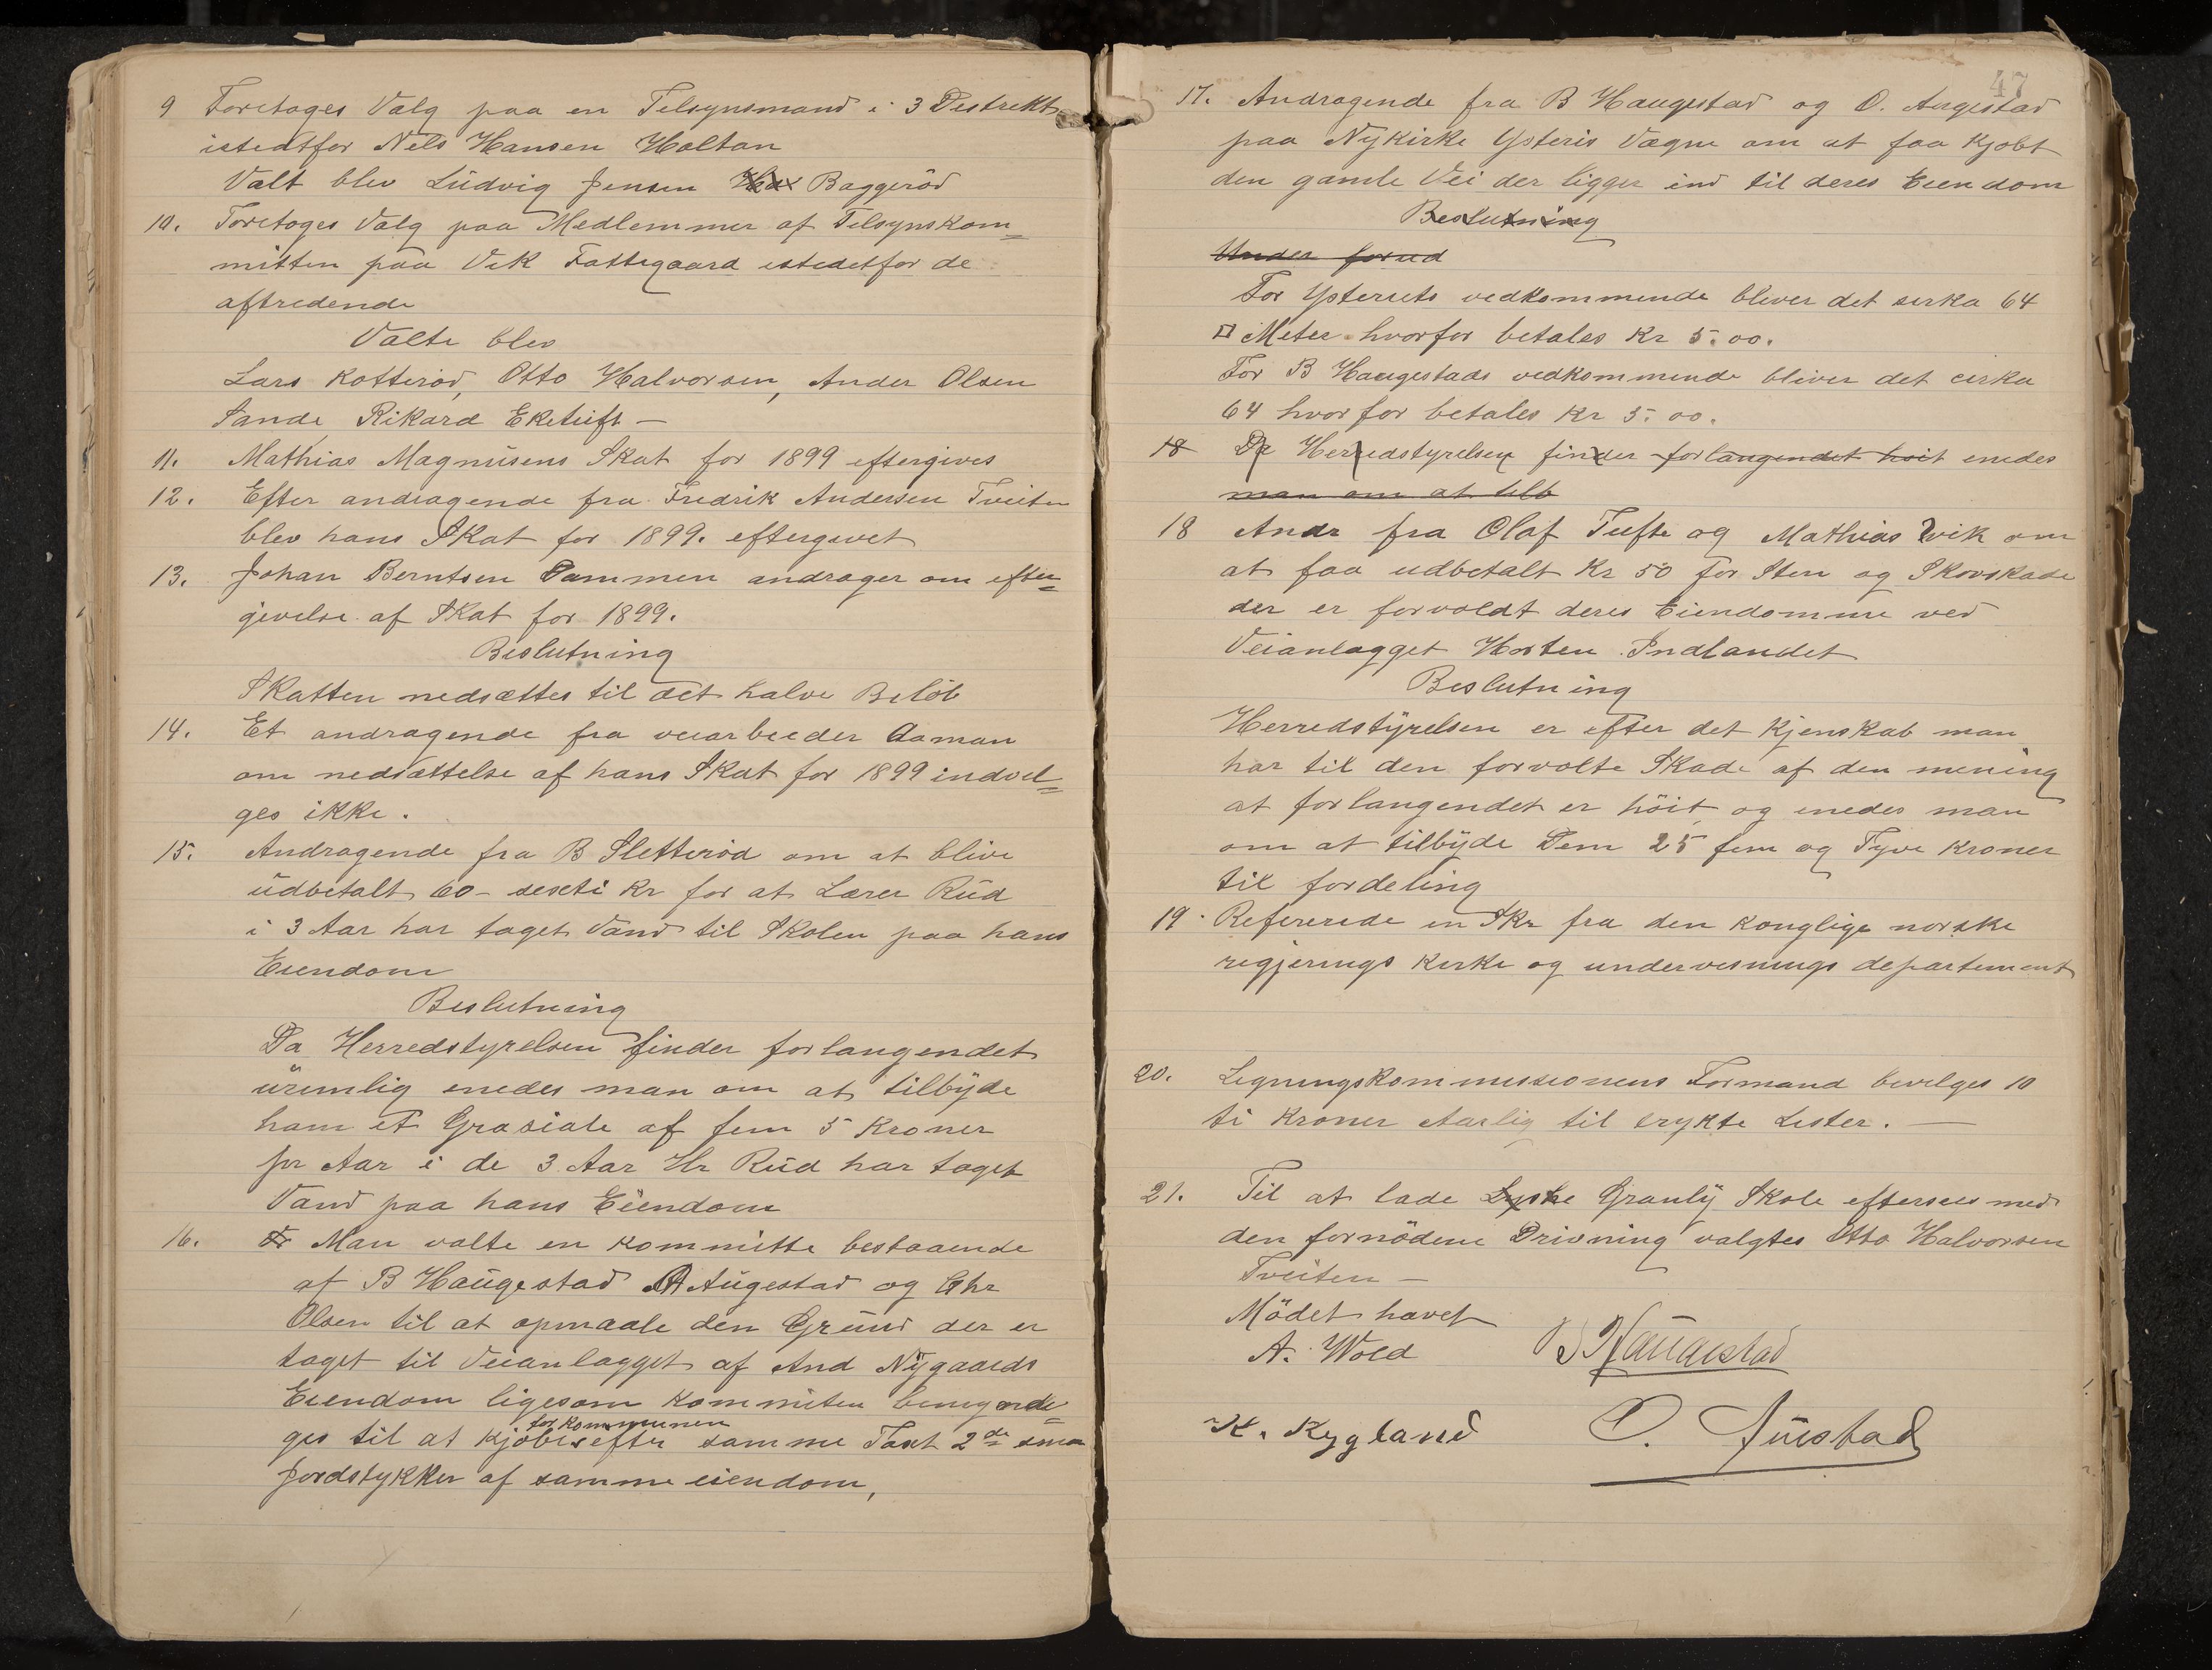 9 Foretoges Valg paa en Tilsynsmand i 3 Distrikt
istedtfor Nels Hansen Holtan
Valt blev Ludvig Jensen Baggeröd
10. Foretoges Valg paa Medlemmer af Tilsynskom=
mitten paa Vik Fattigaard istedetfor de
aftredende
Valte blev
Lars Kotteröd, Otto Halvorsen, Ander Olsen
Sande, Rikard Eketuft —
11. Mathias Magnusens Skat for 1899 eftergives
12. Efter andragende fra Fredrik Andersen Tveiten
blev hans Skat for 1899. eftergivet
13. Johan Berntsen Dammen andrager om efter=
givelse af Skat for 1899.
Beslutning
Skatten nedsættes til det halve Belöb
14. Et andragende fra veiarbeider Aaman
om nedsættelse af hans Skat for 1899 indvel=
ges ikke.
15. Andragende fra B Sletteröd om at blive
udbetalt 60 – sexti Kr for at Lærer Rud
i 3 Aar har taget Vand til Skolen paa hans
Eiendom
Beslutning
Da Herredstyrelsen finder forlangendet
urimlig enedes man om at tilbyde
ham et Grasiale af fem 5 Kroner
pr Aar i de 3 Aar Hr Rud har taget
Vand paa hans Eiendom
16. Man valte en Kommitte bestaaende
af B Haugestad A Augestad og Chr
Olsen til at opmaale den Grund der er
taget til Veianlægget af And Nygaards
Eiendom ligesom Kommiten bemynde=
for Kommunen
ges til at kjöbe efter samme Taxt 2de smaa
Jordstykker af samme eiendom,
47
17. Andragende fra B Haugestad og O. Augestad
paa Nykirke Ysteris Vægne om at faa Kjöbt
den gamle Vei der ligger ind til deres Eiendom
Beslutning
Under forud
For Ysteriets vedkommende bliver det serka 64
□ Meter hvorfor betales Kr 5.00.
For B Haugestads vedkommende bliver det cirka
64 hvorfor betales Kr 5.00.
18 Da Herredstyrelsen finder forlangendet höit enedes
man om at tilb
18 Andr fra Olaf Tufte og Mathias Vik om
at faa udbetalt Kr 50 for Sten og Skovskade
der er forvoldt deres Eiendomme ved
Veianlægget Horten Indlandet
Beslutning
Herredstyrelsen er efter det Kjenskab man
har til den forvolte Skade af den mening
at forlangendet er höit og enedes man
om at tilbyde Dem 25 fem og Tyve Kroner
til fordeling
19. Refererede en Skr fra den Konglige norske
regjerings Kirke og undervisnings departement
20. Ligningskommissionens Formand bevilges 10
ti Kroner Aarlig til trykte Lister. —
21. Til at lade Granly Skole eftersees med
den fornödene Drivning valgtes Otto Halvorsen
Tveiten —
Mödet hævet
A. Wold B Haugestad
K. Rygland O.